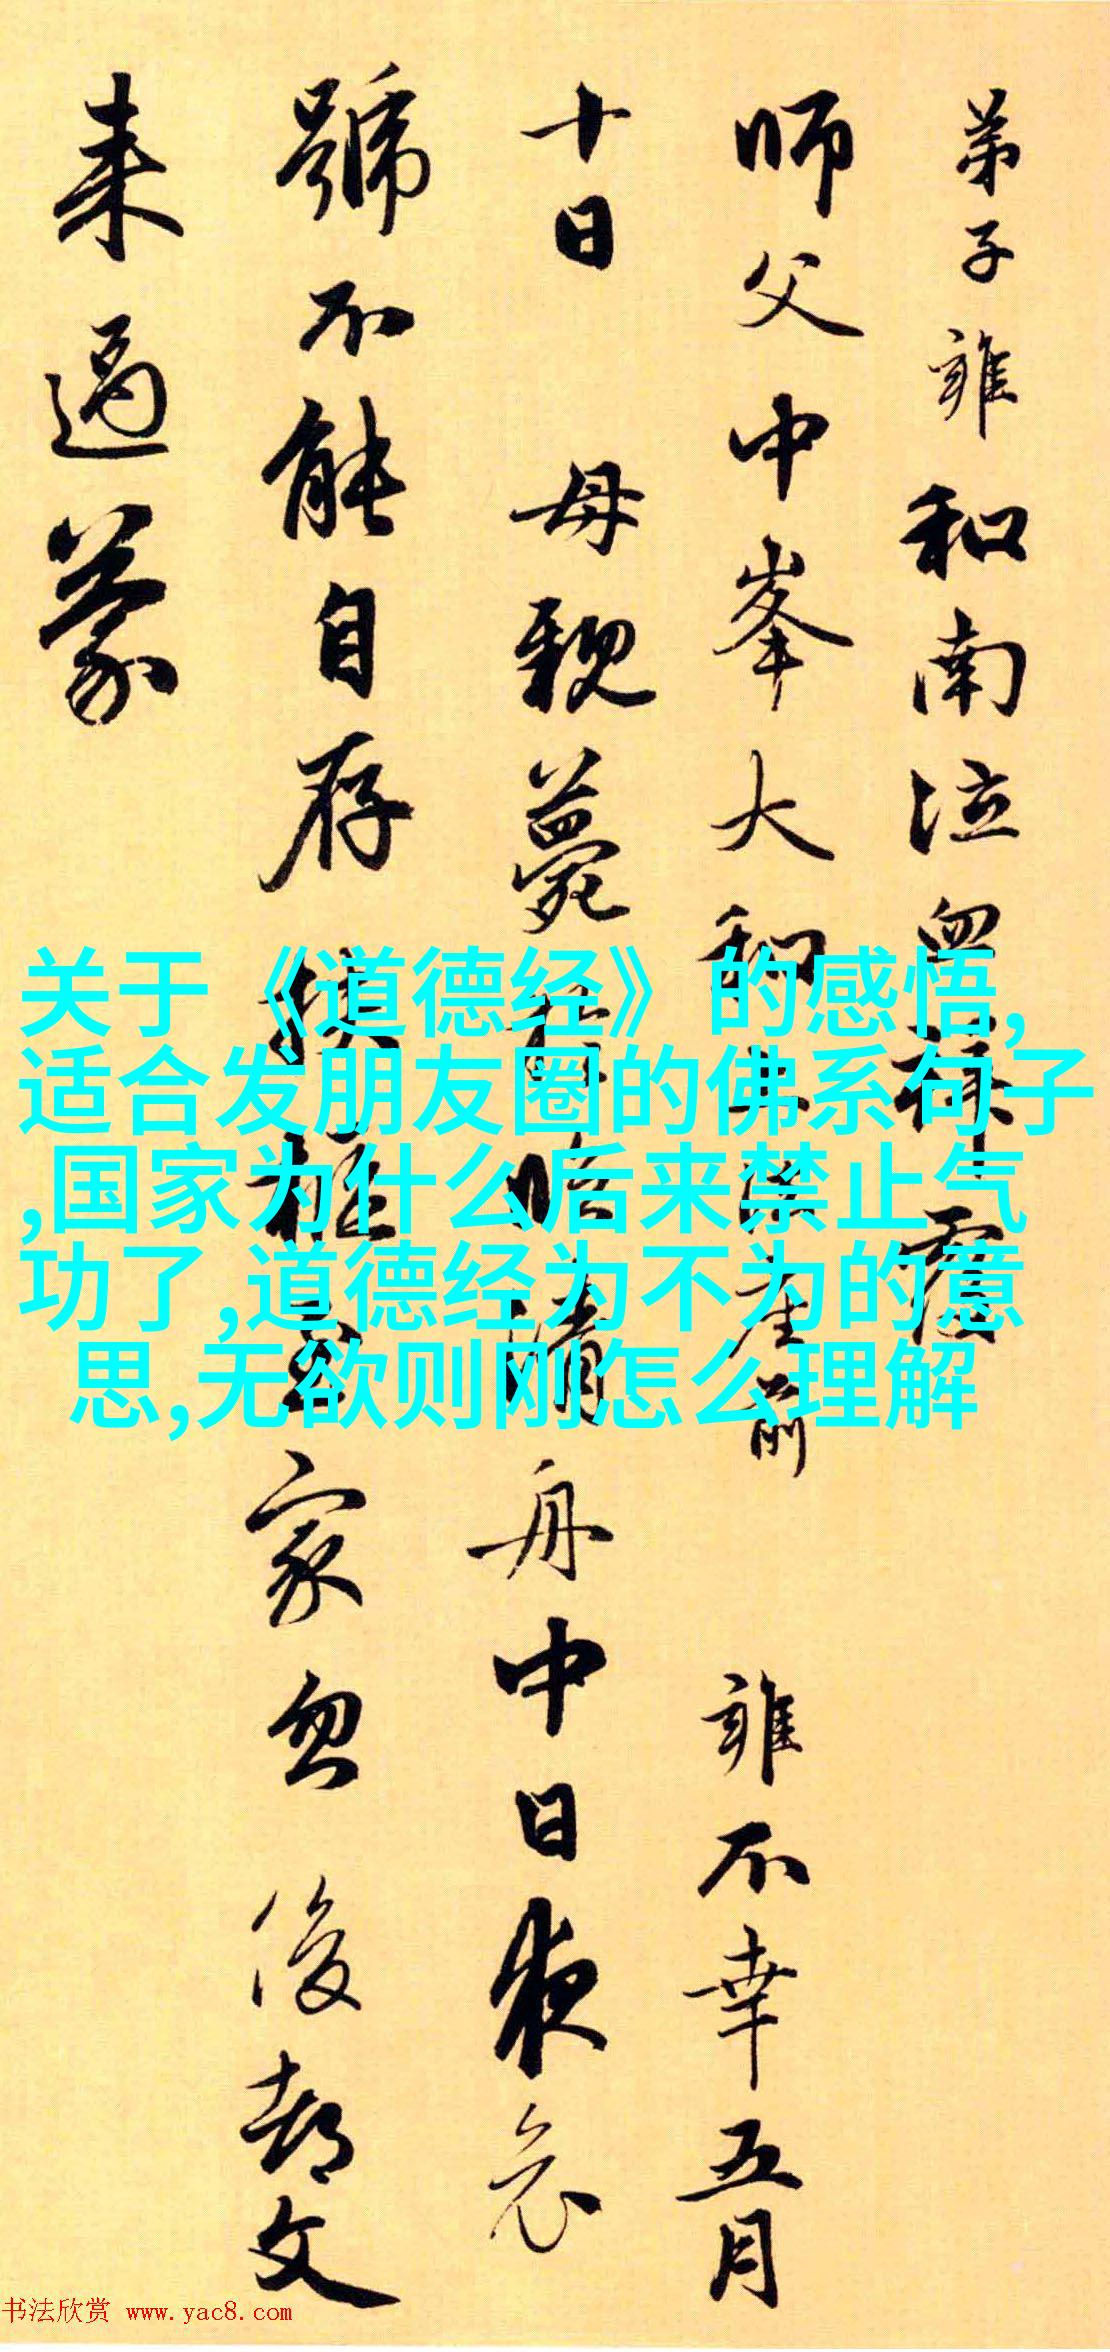 弟子雍和南泣血拜覆
師父中峯大和上
座前 雍不幸五月
十日 母親薨
清舟中日夜哀
號不能自存
家忽 後都文
来過蒙
关于《道德经》的感悟,
适合发朋友圈的佛系句子
,国家为什么后来禁止气
功了,道德经为不为的意
思,无欲则刚怎么理解
书法欣赏 www.yac8.com